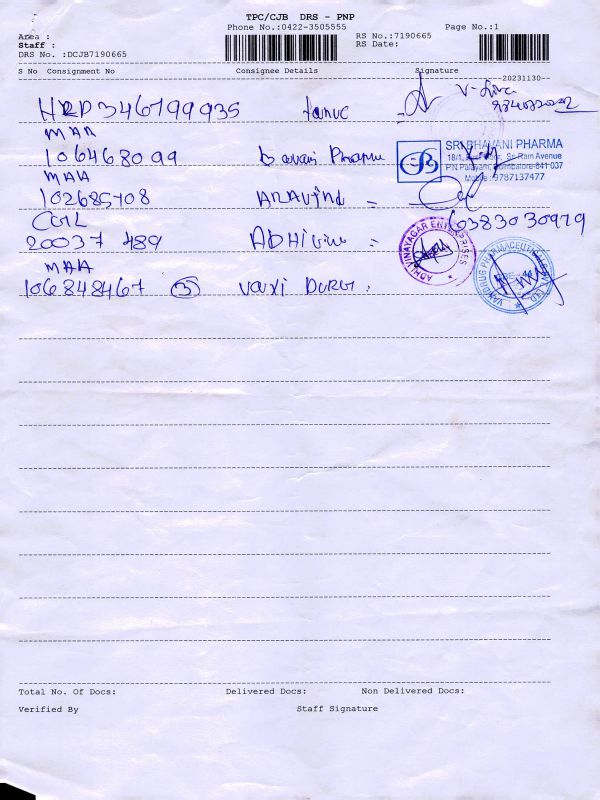 TPC/CJB DRS - PNP
Phone No.:0422-3505555 Page No.:1
Area : RS No.:7190665
Staff : RS Date:
DRS No. :DCJB7190665
S No Consignment No Consignee Details Signature
20231130
HRD346799935
MAA
106468099
SRI BHAVANI PHARMA
18/1, Sri Ram Avenue
P.N.Palayam, Coimbatore-641 037
Mobile : 9787137477
MAA
102685708 ARAVIND =
6383030979
CGL
20037 489 ADHI =
ADHI VINAYAGAR ENTERPRISES
MAA
106848467
Total No. Of Docs: Delivered Docs: Non Delivered Docs:
Verified By Staff Signature